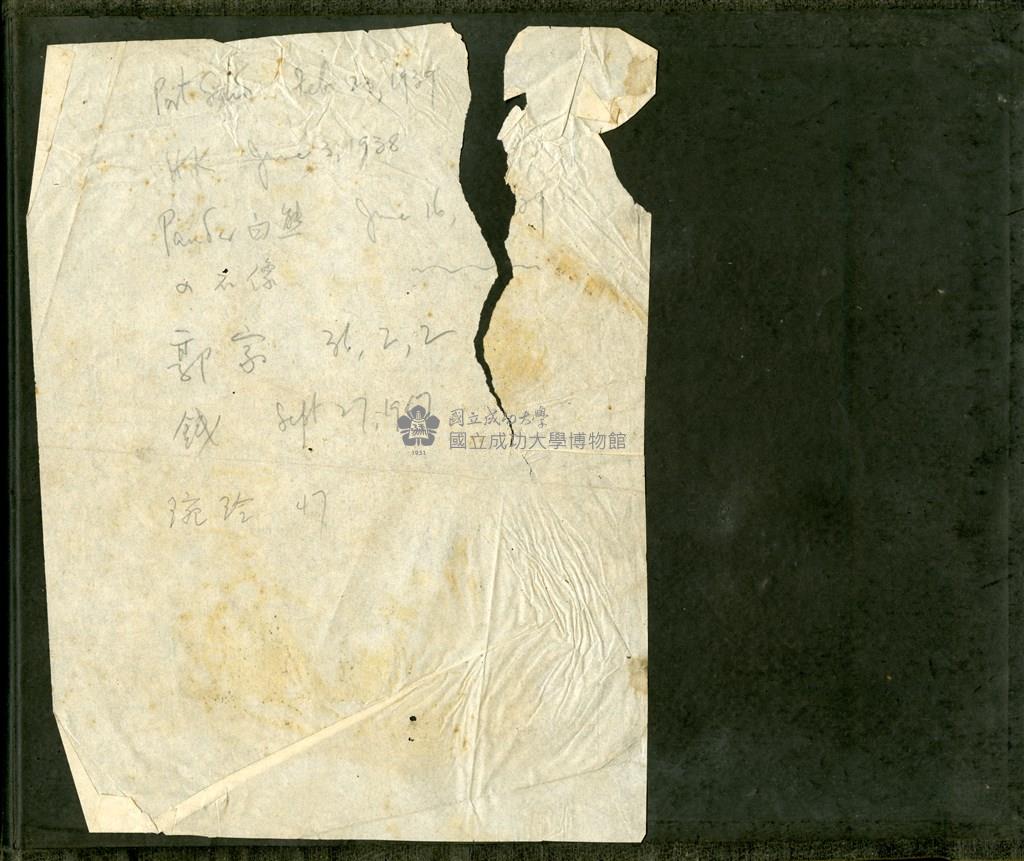 Port Said Feb 23, 1939
HK June 3, 1938
Panda 白熊 June 16, 39
石像
郭字 36, 2, 2
錢 Sept 27, 19
琬玲 47
國立成功大學
國立成功大學博物館
1931